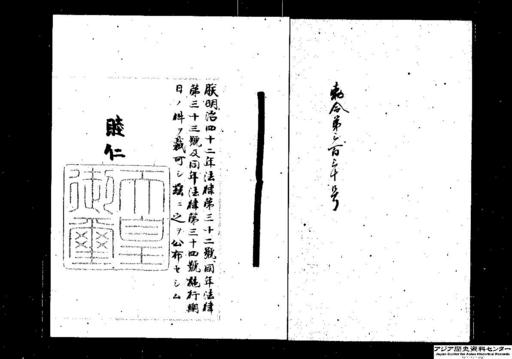 勅令第二百三十号
朕明治四十二年法律第三十二號同年法律
第三十三號及同年法律第三十四號施行期
日ノ件ヲ裁可シ茲ニ之ヲ公布セシム
睦仁
天皇
御璽
アジア歴史資料センター
Japan Center for Asian Historical Records